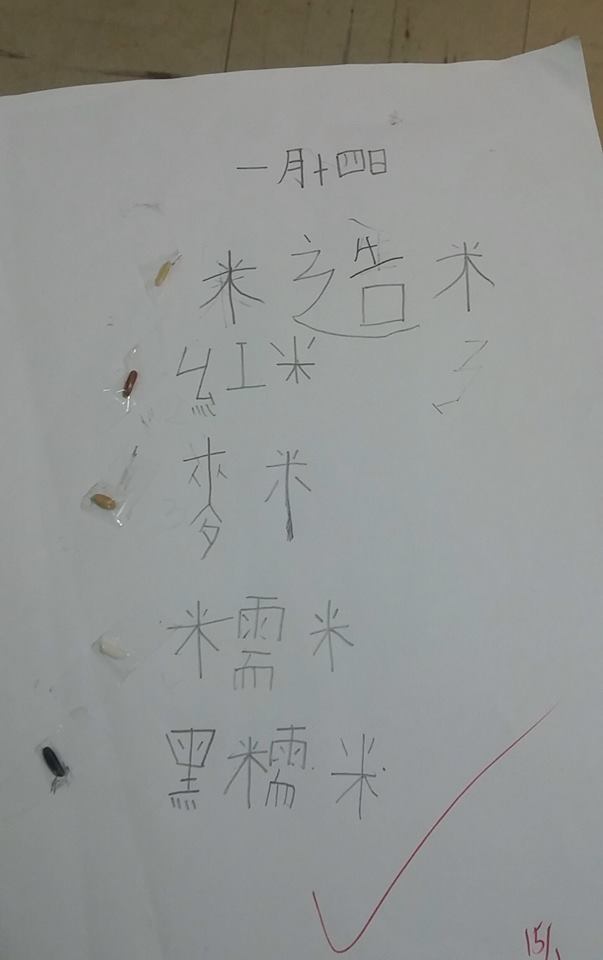 一月十四日
糙米
紅米
麥米
糯米
黑糯米
15/1